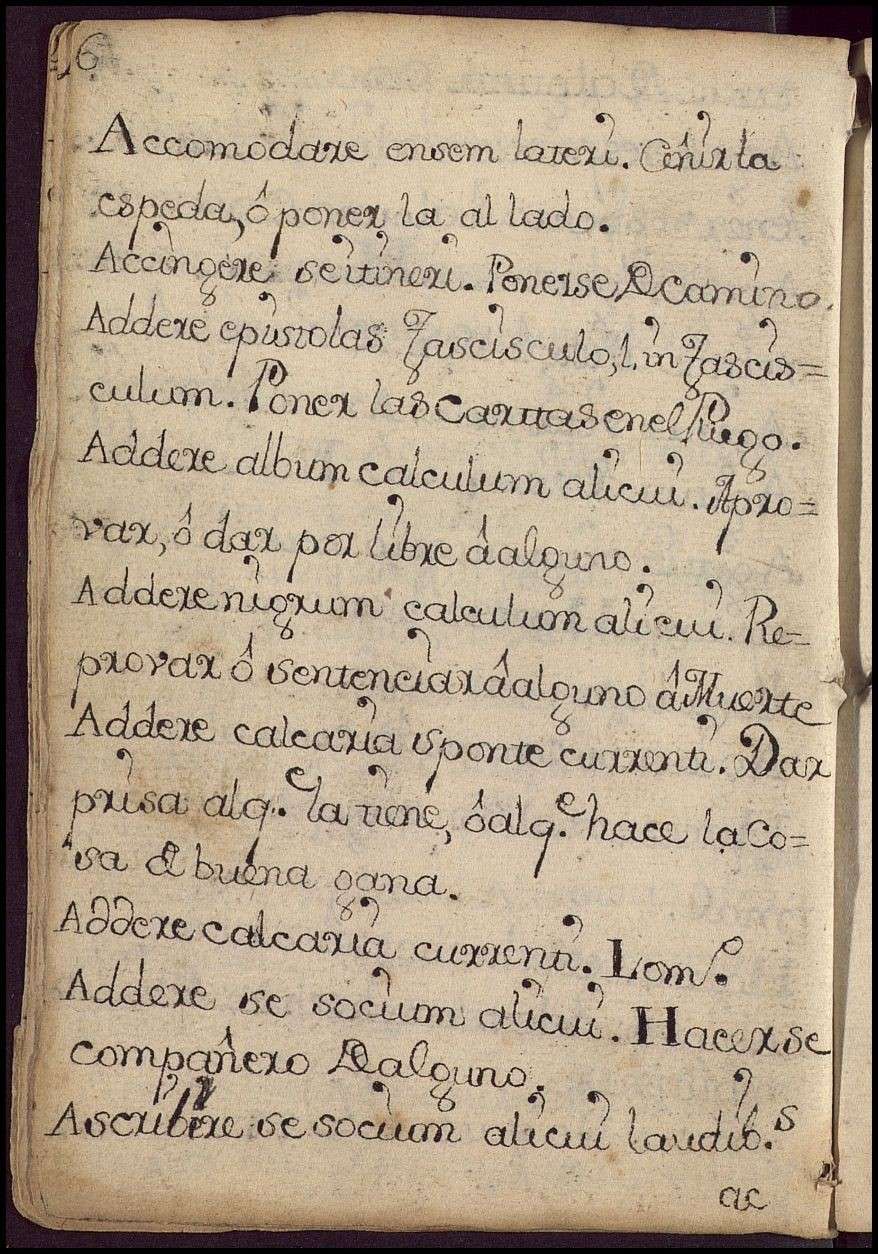 16
Accomodare ensem lateri. Ceñir la
espada, ô poner la al lado.
Accingere se itineri. Ponerse de camino.
Addere epistolas fascisculo, l. in fascis=
culum. Poner las cartas en el Pliego.
Addere album calculum alicui. Apro=
var, ô dar por libre â alguno.
Addere nigrum calculum alicui. Re=
provar ô sentenciar â alguno â Muerte
Addere calcaria sponte currenti. Dar
prisa al q.e la tiene, ô al q.e hace la co=
sa de buena gana.
Addere calcaria currenti. Lo m.o
Addere se socium alicui. Hacerse
compañero de alguno.
Ascribere se socium alicui laudib.s
ac